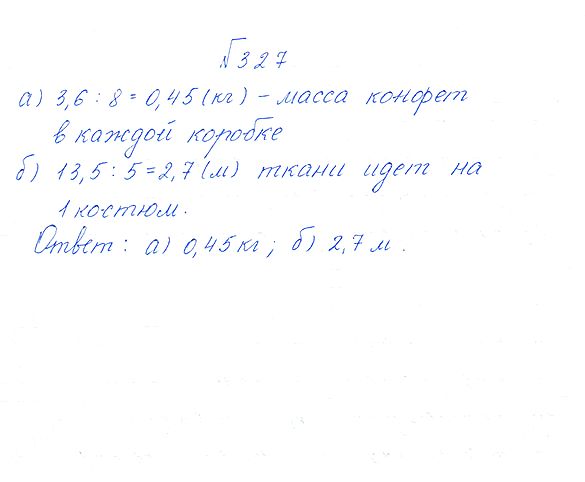 №327
а) 3,6 : 8 = 0,45 (кг) – масса конфет
в каждой коробке
б) 13,5 : 5 = 2,7 (м) ткани идет на
1 костюм.
Ответ: а) 0,45 кг; б) 2,7 м.